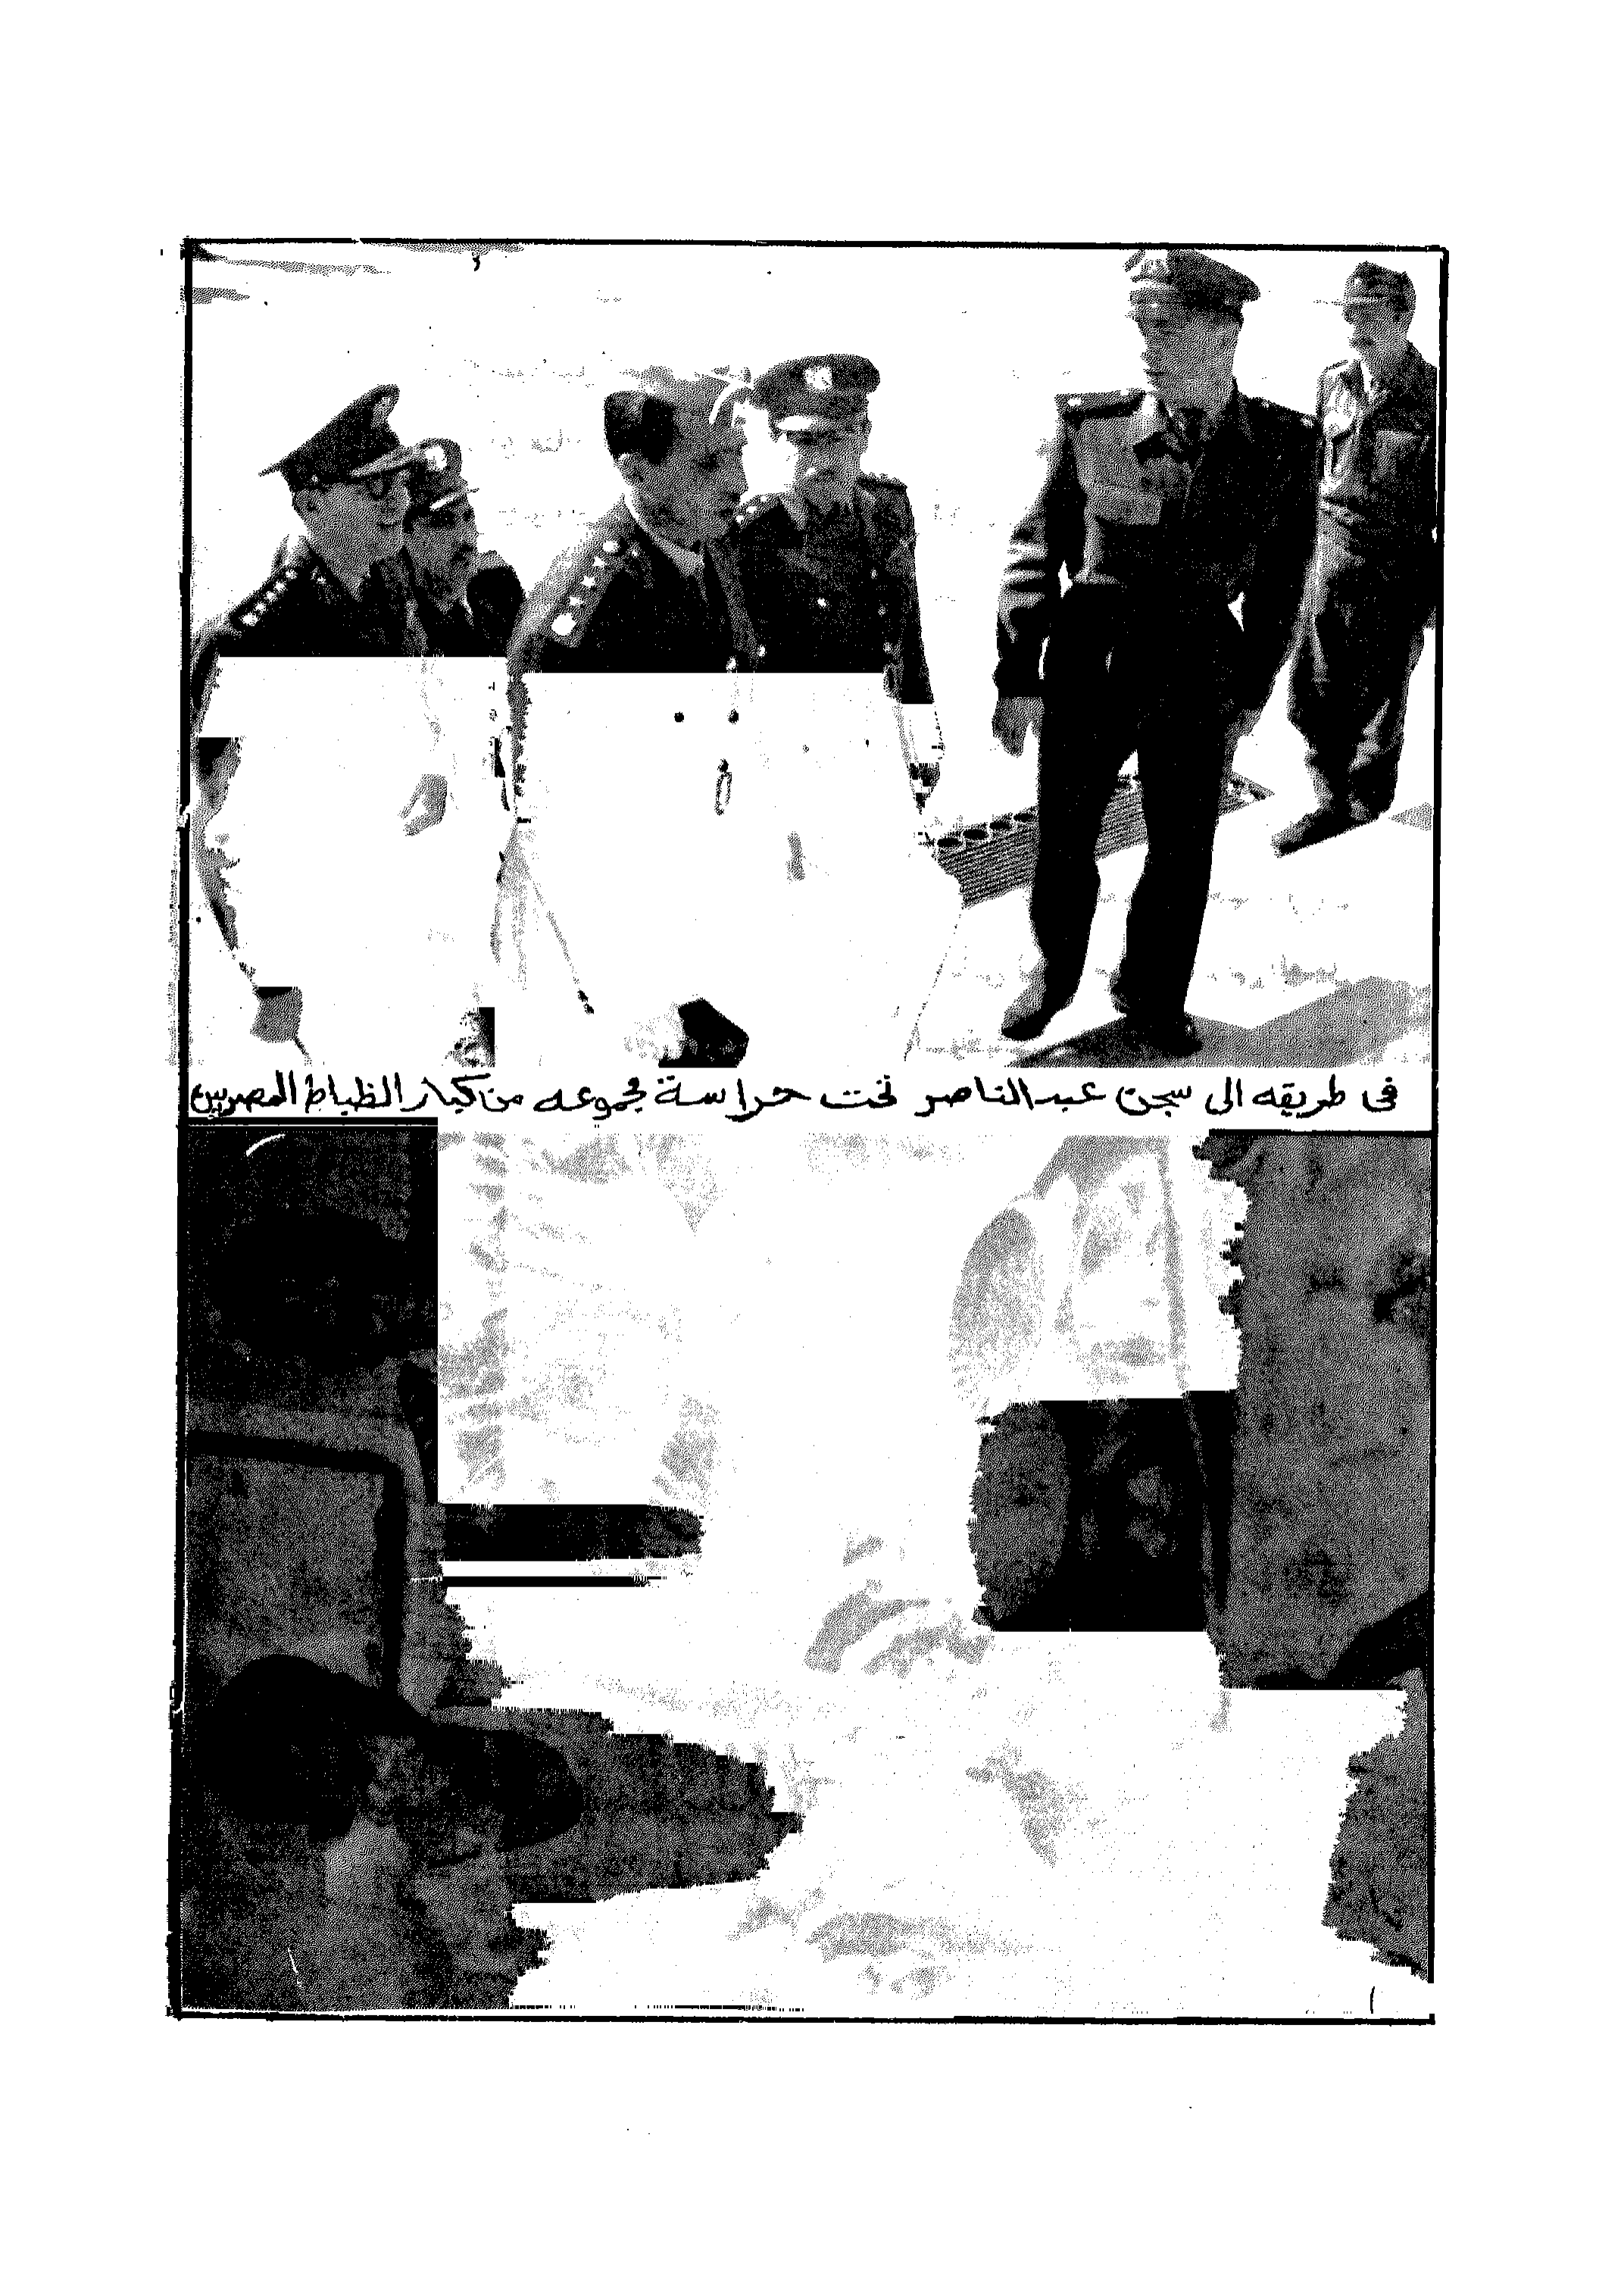 فى طريقه الى سجن عبد الناصر تحت حراسة مجموعه من كبار الظباط المصريين